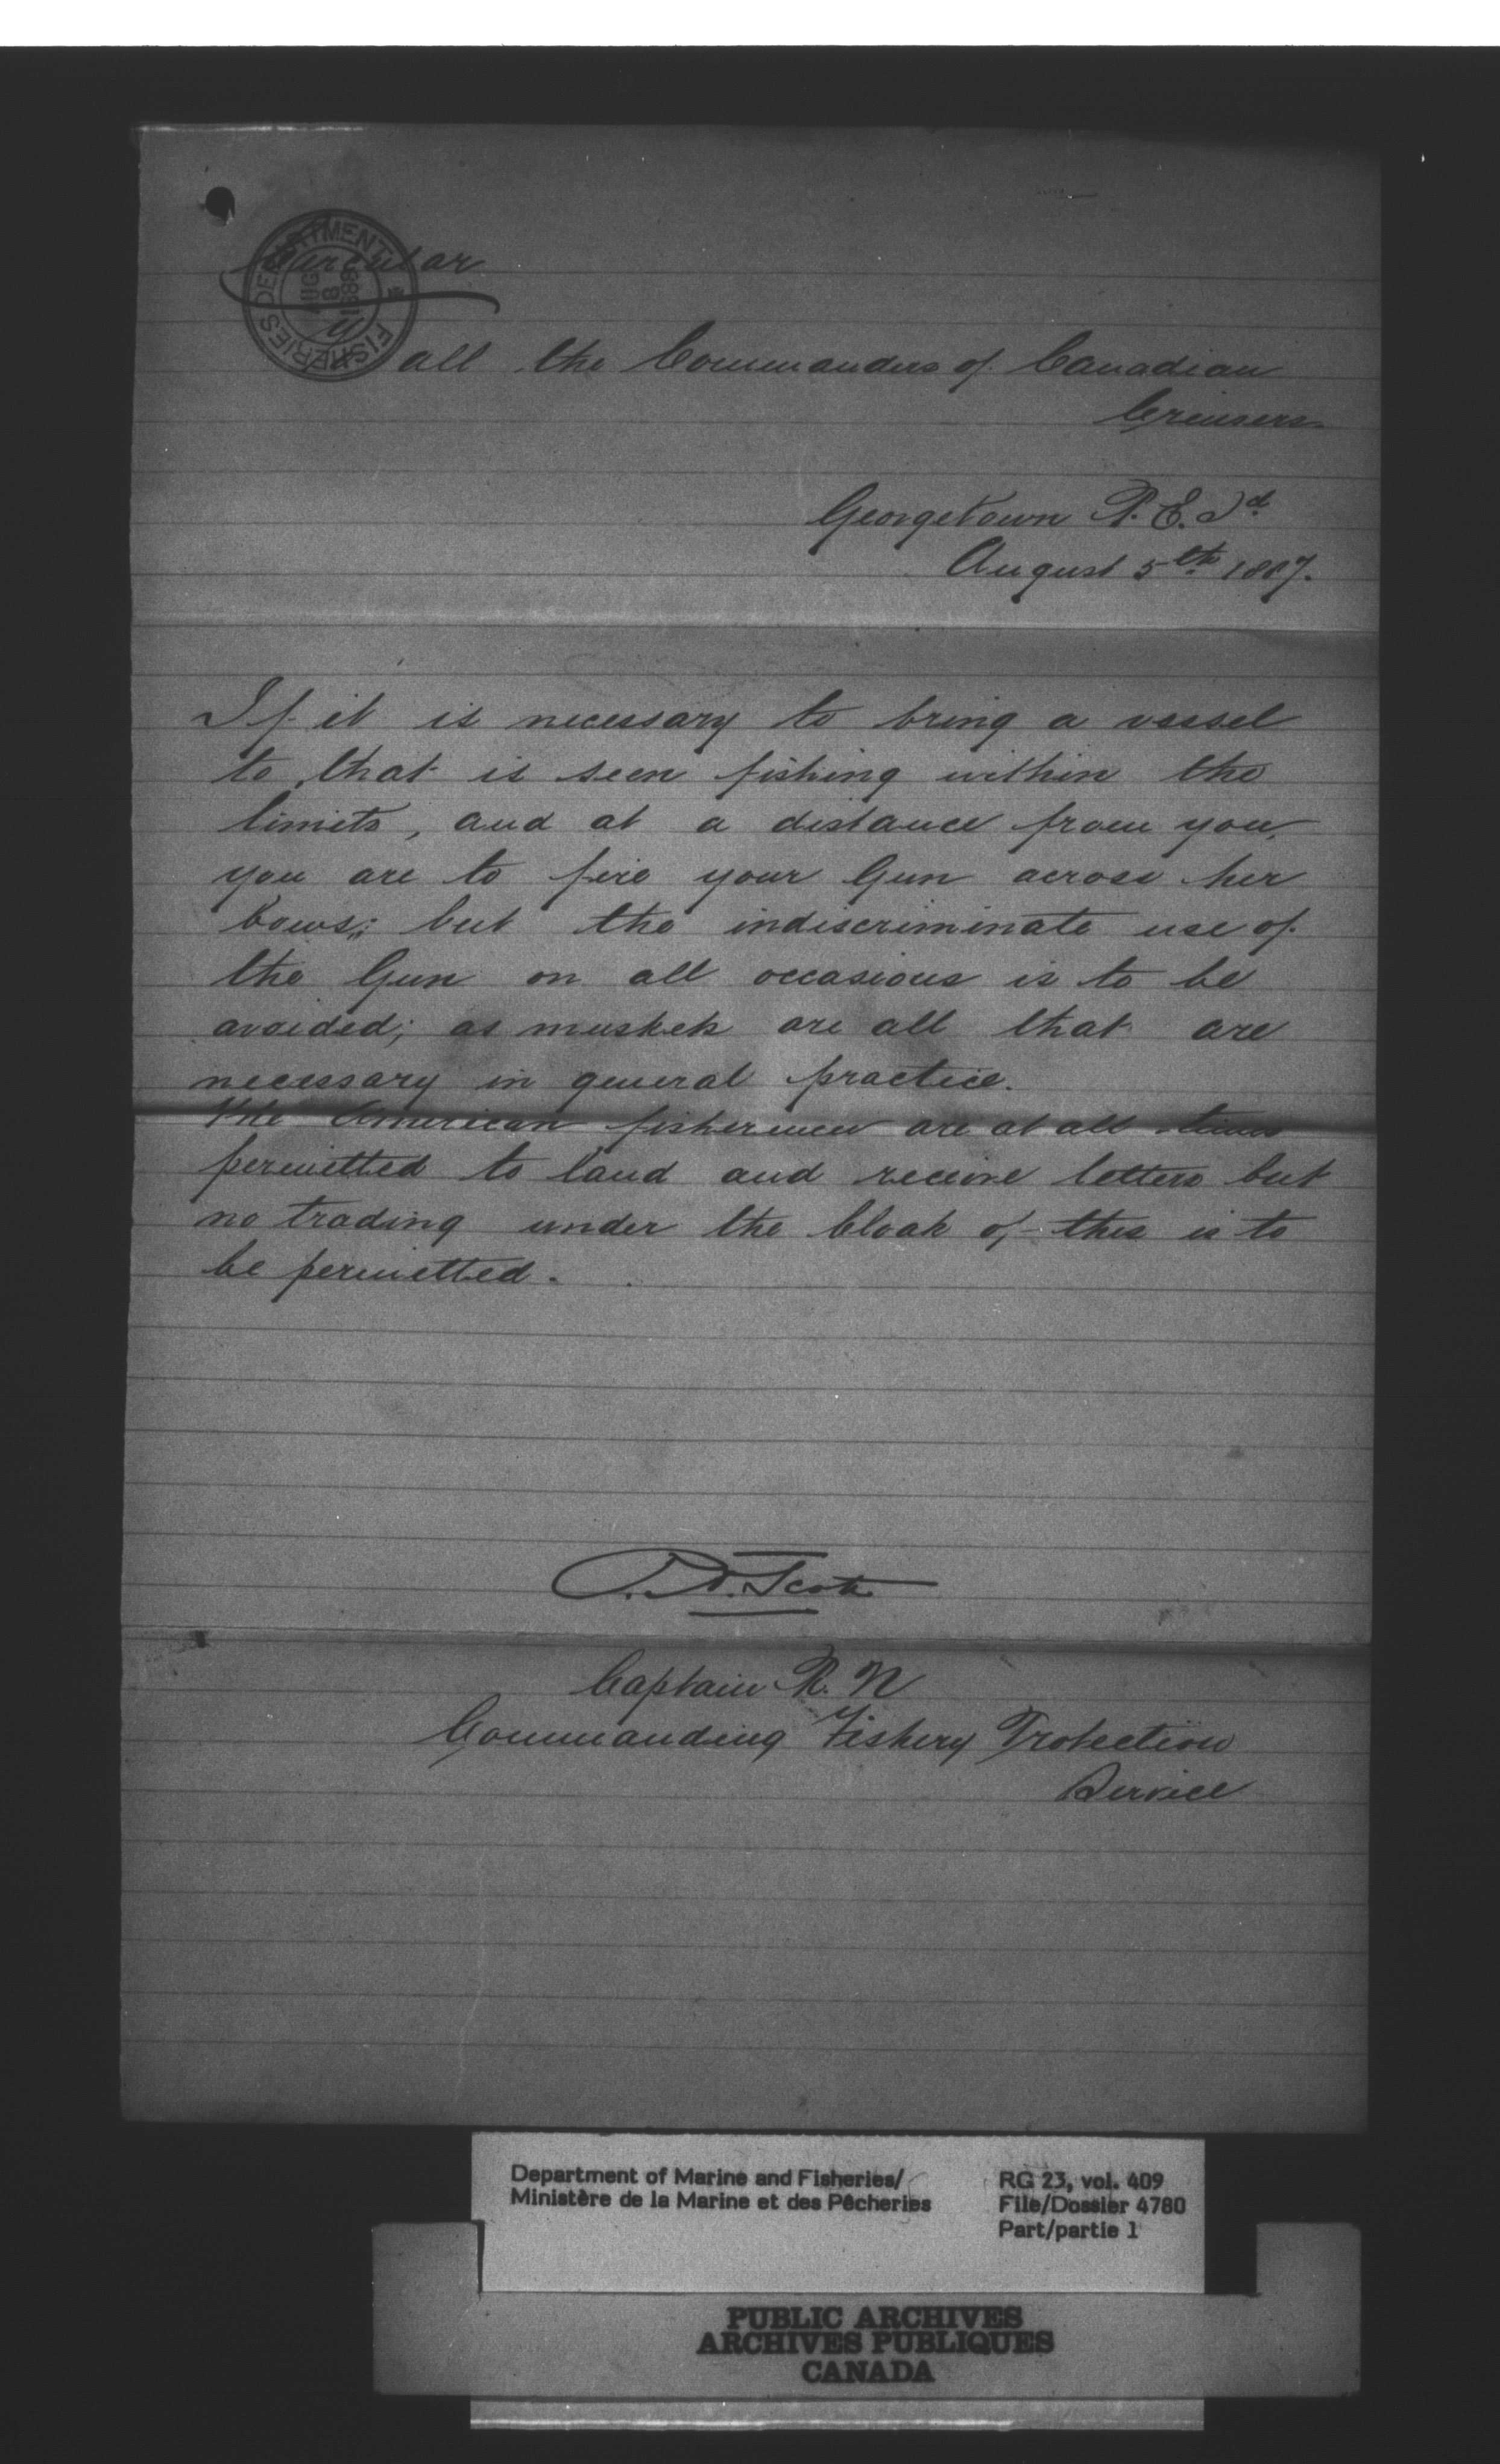 Circular
To all the Commanders of Canadian
Cruisers.
FISHERIES DEPARTMENT
AUG
8
Georgetown P. E. Id.
August 5th 1887.
If it is necessary to bring a vessel
to that is seen fishing within the
limits, and at a distance from you,
you are to fire your Gun across her
bows; but the indiscriminate use of
the Gun on all occasions is to be
avoided; as muskets are all that are
necessary in general practice.
The American fishermen are at all times
permitted to land and receive letters but
no trading under the Cloak of this is to
be permitted.
P. A. Scott
Captain R. N
Commanding Fishery Protection
Service
Department of Marine and Fisheries/
Ministère de la Marine et des Pêcheries
RG 23, vol. 409
File/Dossier 4780
Part/partie 1
PUBLIC ARCHIVES
ARCHIVES PUBLIQUES
CANADA